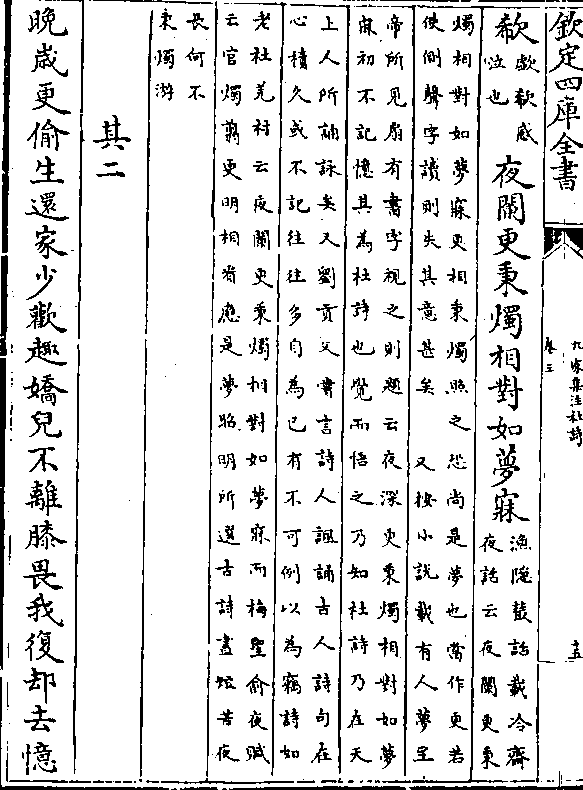 欽定四庫全書
九家集注杜詩
卷三
十五
欷
歔欷感
泣也
夜闌更秉燭相對如夢寐
漁隱叢話載冷齋
夜話云夜闌更秉
燭相對如夢寐更相秉燭照之恐尚是夢也當作更若
使側聲字讀則失其意甚矣 又按小說載有人夢至
帝所見扇有書字視之則題云夜深更秉燭相對如夢
寐初不記憶其為杜詩也覺而悟之乃知杜詩乃在天
上人所誦詠矣又劉貢父嘗言詩人諷誦古人詩句在
心積久或不記往往多自為已有不可例以為竊詩如
老杜羌村云夜闌更秉燭相對如夢寐而梅聖俞夜賦
云官燭翦更明相看應是夢昭明所選古詩晝短苦夜
長何不
秉燭游
其二
晚歲更偷生還家少歡趣嬌兒不離膝畏我復却去憶